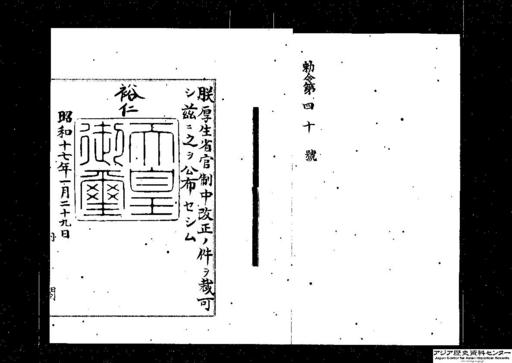 勅令第四十號
朕厚生省官制中改正ノ件ヲ裁可
シ茲ニ之ヲ公布セシム
裕仁
天皇御璽
昭和十七年一月二十九日
アジア歴史資料センター
Japan Center for Asian Historical Records